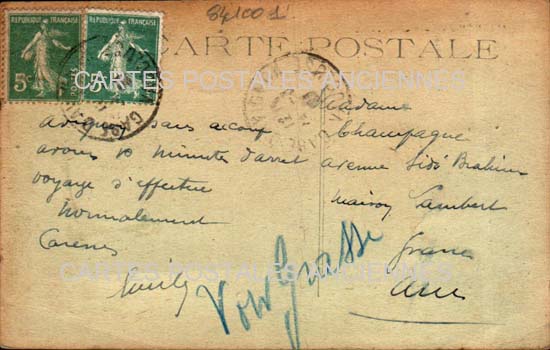 84100 1
RÉPUBLIQUE FRANÇAISE
5c POSTES
RÉPUBLIQUE FRANÇAISE
5c
CARTE POSTALE
CARTES POSTALES ANCIENNES
Avignon sans accroc
avons 10 minutes d'arret
voyage s'effectue
normalement
Caresses
Emile
Madame
Champagne
avenue Sidi Brahim
maison Lambert
Grasse
Voir Grasse
CARTES POSTALES ANCIENNES